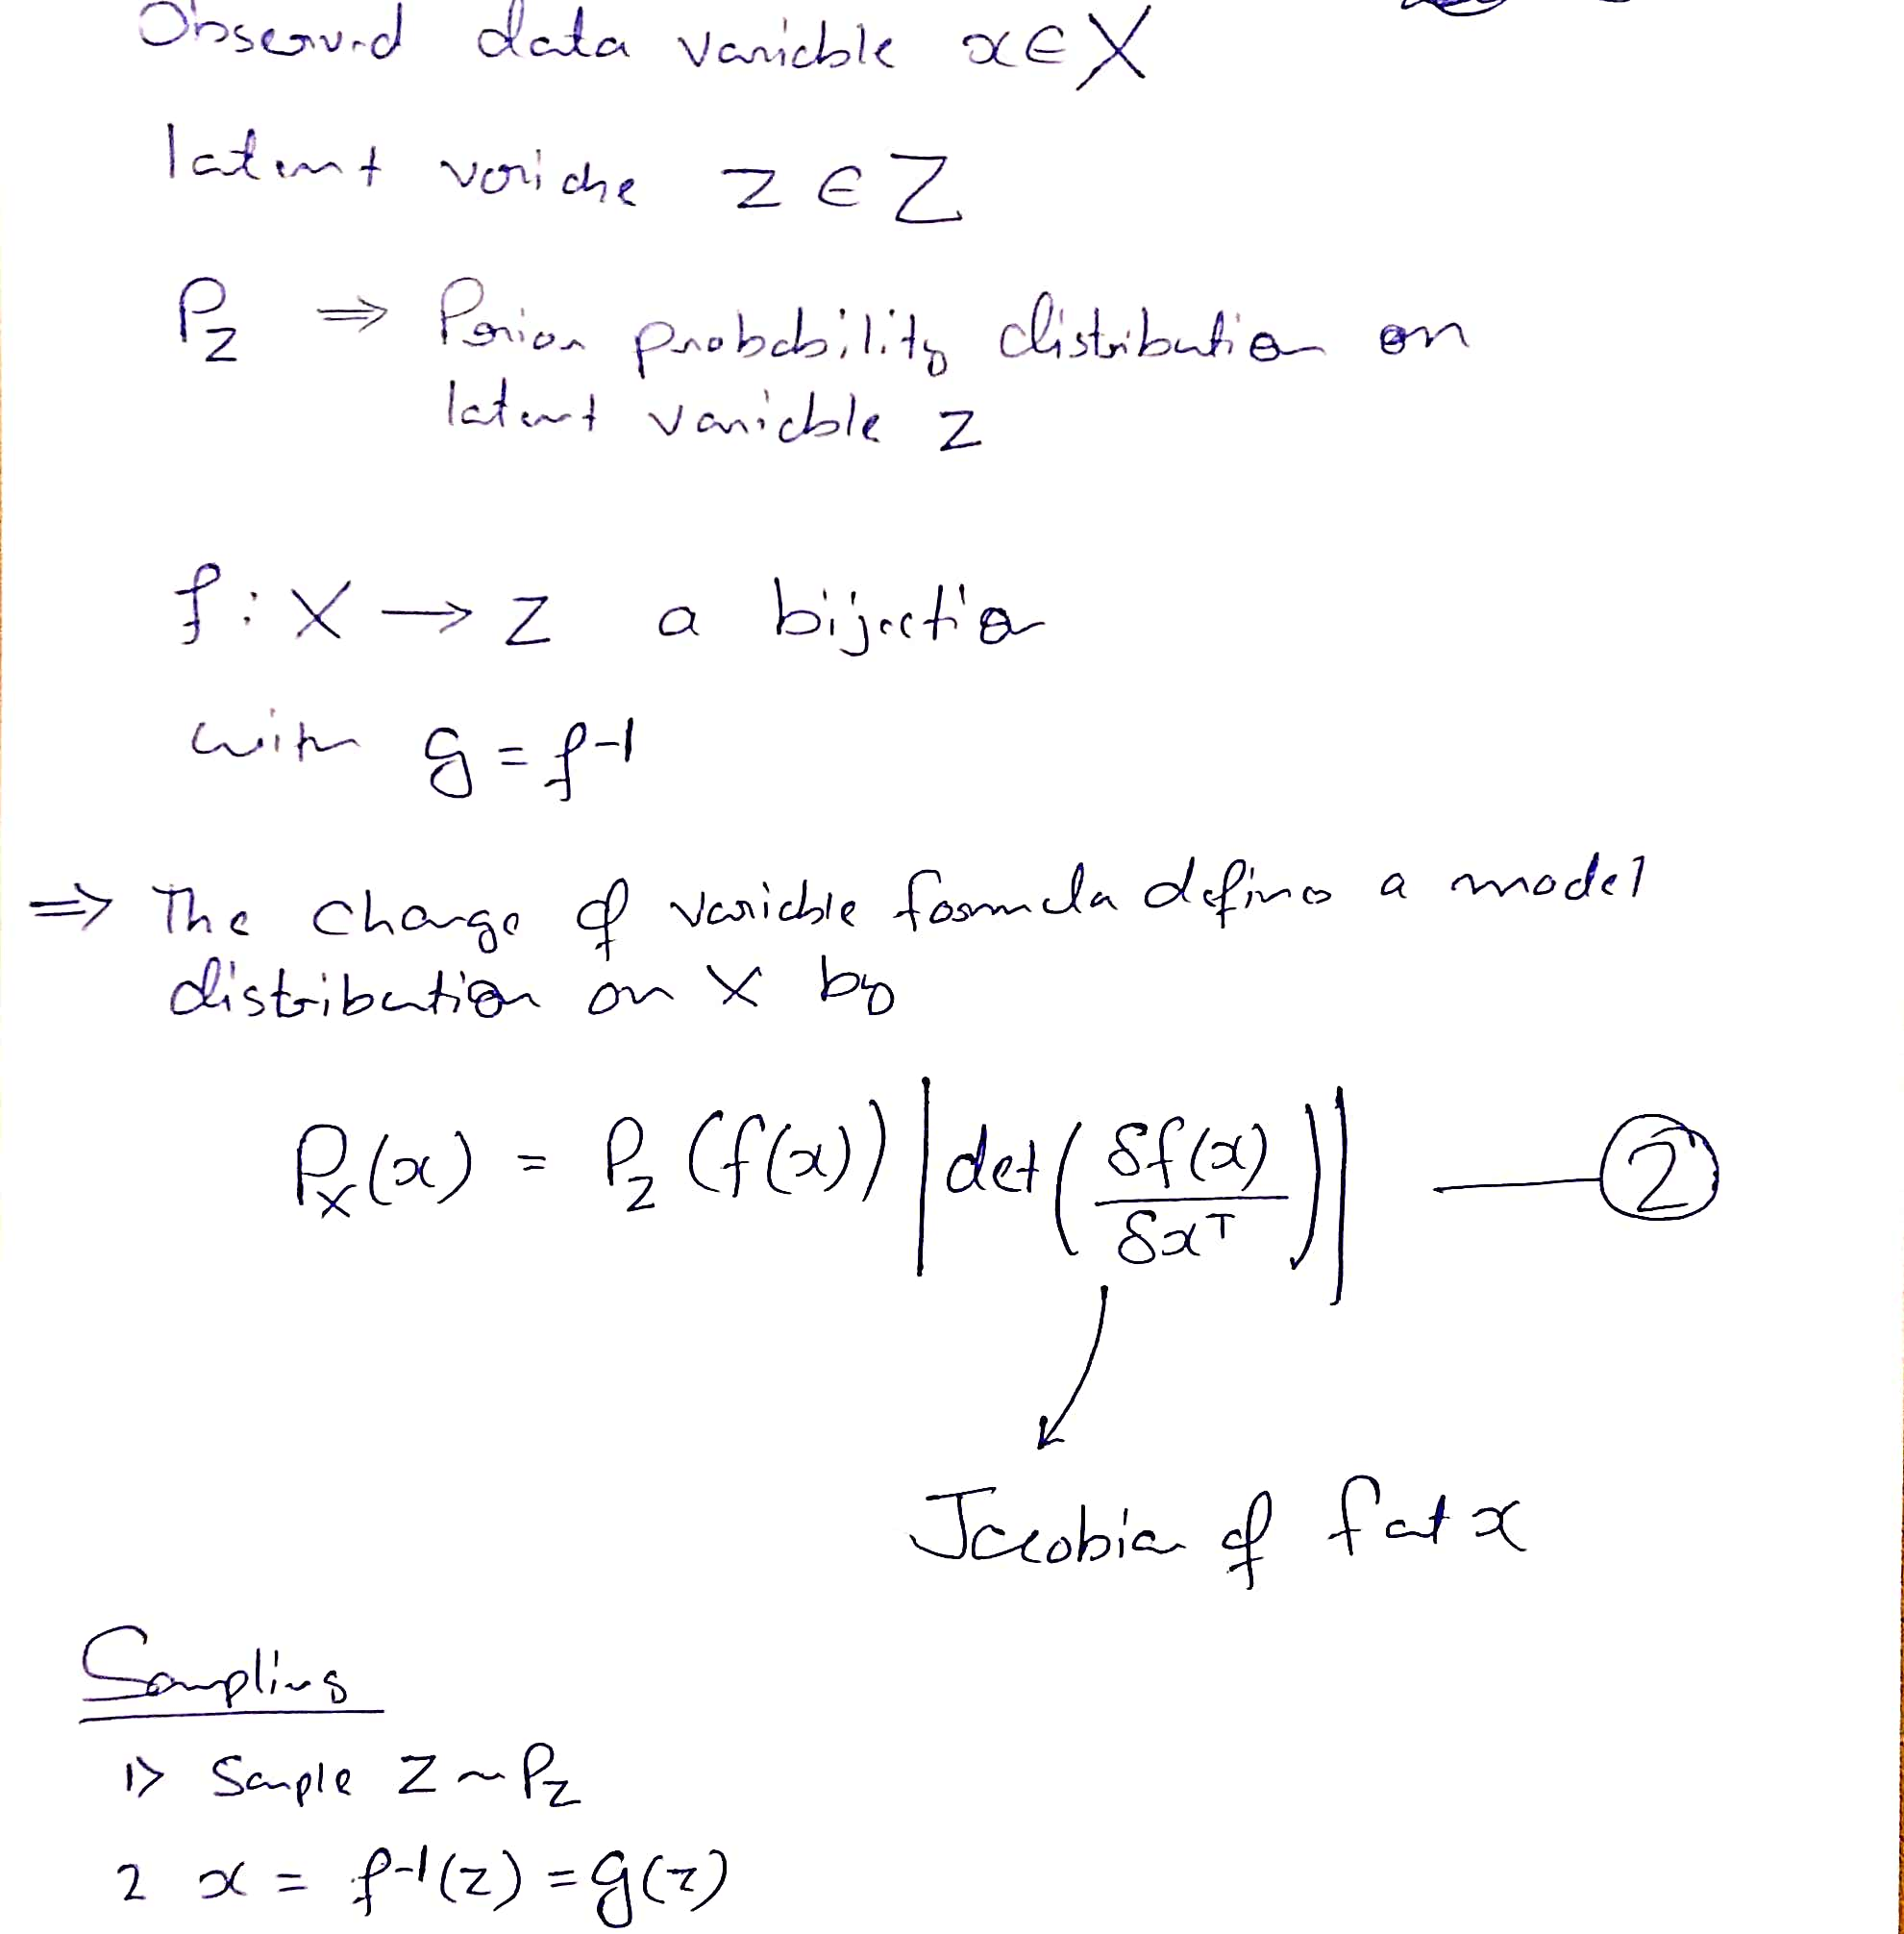 Observed data variable x ∈ X
latent variable z ∈ Z
P_Z ⇒ Prior probability distribution on
latent variable z
f : X → Z a bijection
with g = f^-1
⇒ The change of variable formula defines a model
distribution on X by
P_X(x) = P_Z (f(x)) | det ( δf(x) / δx^T ) | —— 2
Jacobian of f at x
Sampling
1> Sample z ~ P_Z
2 x = f^-1(z) = g(z)